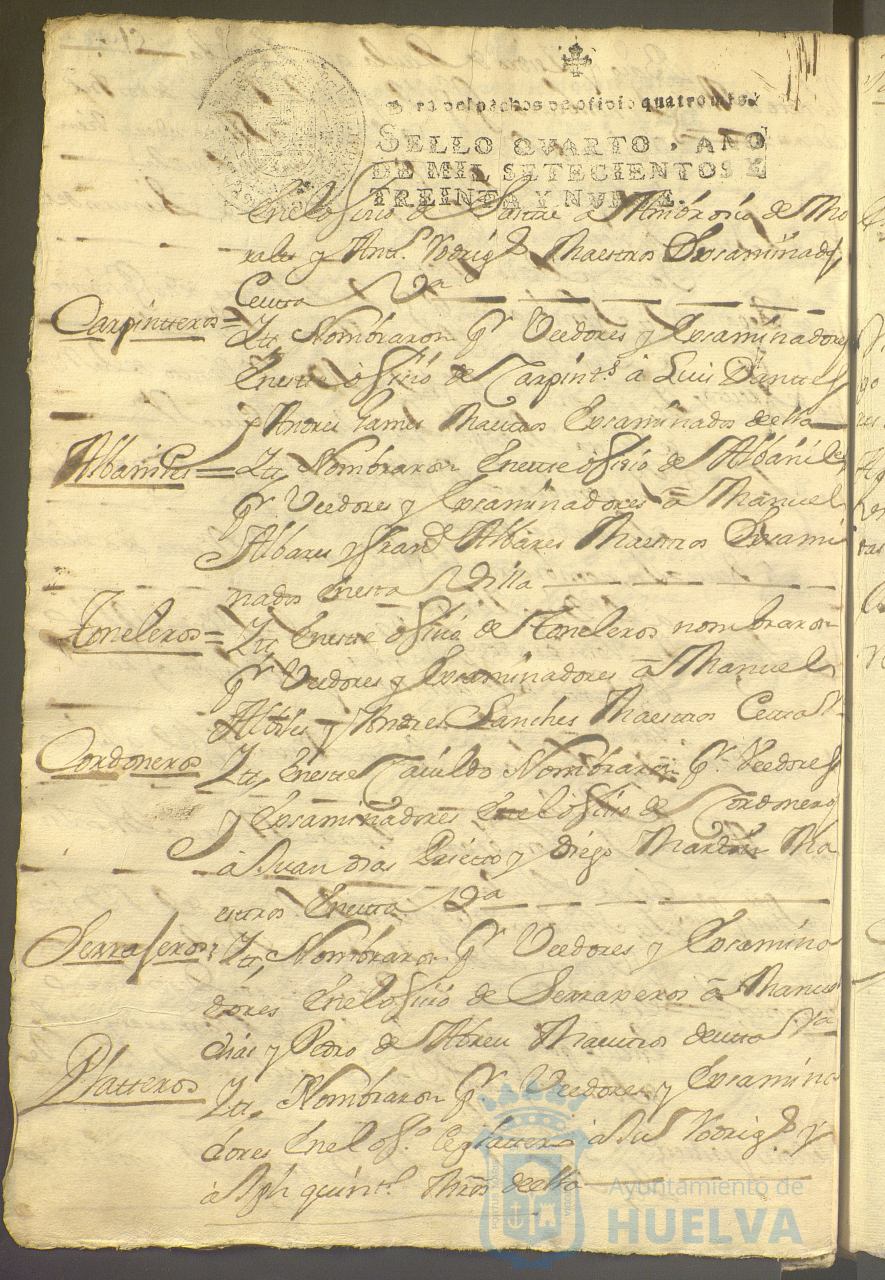 Para despachos de oficio quatro mrs.
SELLO QVARTO, AÑO
DE MIL SETECIENTOS Y
TREINTA Y NVEVE.
En el ofisio de Sastre a Ambrosio de Mo
rales y Ant.º Rodrig.s Maestros Exsaminad.s
Carpintteros =
Ytt. Nombraron p.r Veedores y Exsaminadores
En este ofisio de Carpint.s â Luis
y Andres Maestros Exsaminados de ella
Albaniles =
Ytt. Nombraron En este ofisio de Albañiles
p.r Veedores y Exsaminadores â Manuel
Albares y Fran.co Albares Maestros Exsami
nados En esta Villa
Toneleros =
Ytt. En este ofisio de Toneleros nombraron
p.r Veedores y Exsaminadores â Manuel
y Andres Sanches Maestros
Cordoneros
Ytt. En este Cavildo Nombraron p.r Veedores
y Exsaminadores En el ofisio de Cordonero
â Juan dias Prietto y diego Martin Ma
estros En esta V.a
Serrajeros =
Ytt. Nombraron p.r Veedores y Exsamina
dores En el ofisio de Serrageros â Manuel
dias y Pedro de Abreu Maestros de esta V.a
Platteros
Ytt. Nombraron p.r Veedores y Exsamina
dores En el of.o de plattero â Rodrig.s y
â Jph quint.o Mros de ella
Ayuntamiento de
HUELVA